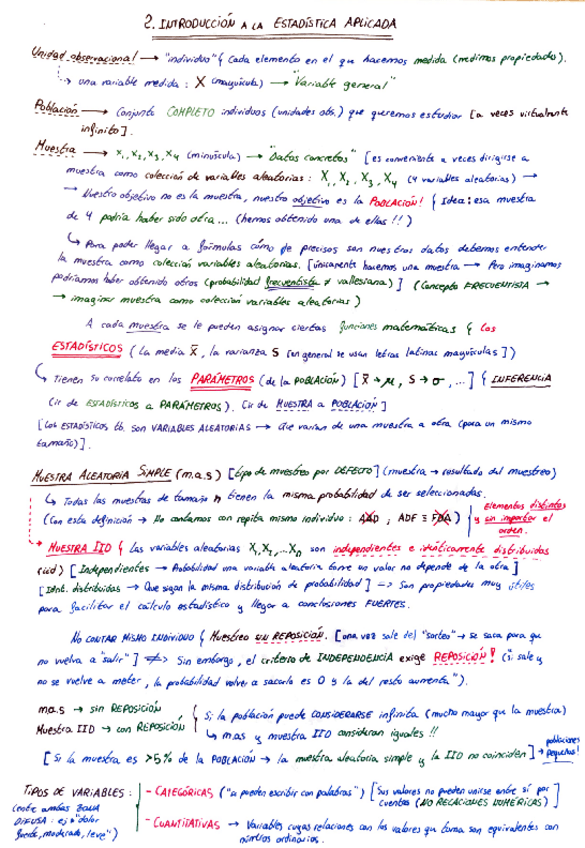 2. INTRODUCCIÓN A LA ESTADÍSTICA APLICADA
Unidad observacional → "individuo" { Cada elemento en el que hacemos medida (medimos propiedades).
→ una variable medida : X (mayúscula) → "Variable general"
Población → Conjunto COMPLETO individuos (unidades obs.) que queremos estudiar [a veces virtualmente
infinito].
Muestra → x₁, x₂, x₃, x₄ (minúscula) → "Datos concretos" [es conveniente a veces dirigirse a
muestra como colección de variables aleatorias : X₁, X₂, X₃, X₄ (4 variables aleatorias) →
→ Nuestro objetivo no es la muestra, nuestro objetivo es la POBLACIÓN! { Idea : esa muestra
de 4 podría haber sido otra... (hemos obtenido una de ellas !!)
↳ Para poder llegar a fórmulas cómo de precisos son nuestros datos debemos entender
la muestra como colección variables aleatorias. [únicamente hacemos una muestra → Pero imaginamos
podríamos haber obtenido otros (probabilidad frecuentista ≠ vallesiana)] (Concepto FRECUENTISTA →
→ imaginar muestra como colección variables aleatorias)
A cada muestra se le pueden asignar ciertas funciones matemáticas { los
ESTADÍSTICOS (La media X̄, la varianza S [en general se usan letras latinas mayúsculas])
↳ Tienen su correlato en los PARÁMETROS (de la POBLACIÓN) [X̄ → μ, S → σ, ...] { INFERENCIA
(ir de ESTADÍSTICOS a PARÁMETROS). (ir de MUESTRA a POBLACIÓN]
[Los ESTADÍSTICOS tb. son VARIABLES ALEATORIAS → Que varían de una muestra a otra (para un mismo
tamaño)].
MUESTRA ALEATORIA SIMPLE (m.a.s) [tipo de muestreo por DEFECTO] (muestra → resultado del muestreo)
↳ Todas las muestras de tamaño n tienen la misma probabilidad de ser seleccionadas.
(Con esta definición → No contamos con repita mismo individuo : AAD ; ADF ≡ FDA) } Elementos distintos
y sin importar el
orden.
→ MUESTRA IID { Las variables aleatorias X₁, X₂, ... Xₙ son independientes e idénticamente distribuidas
(iid) [Independientes → Probabilidad una variable aleatoria tome un valor no depende de la otra]
[Idént. distribuidas → Que sigan la misma distribución de probabilidad] => Son propiedades muy útiles
para facilitar el cálculo estadístico y llegar a conclusiones FUERTES.
NO CONTAR MISMO INDIVIDUO { Muestreo SIN REPOSICIÓN. [una vez sale del "sorteo" → se saca para que
no vuelva a "salir"] Sin embargo, el criterio de INDEPENDENCIA exige REPOSICIÓN! ("si sale y
no se vuelve a meter, la probabilidad volver a sacarlo es 0 y la del resto aumenta").
m.a.s → sin REPOSICIÓN
Muestra IID → con REPOSICIÓN
{ Si la población puede CONSIDERARSE infinita (mucho mayor que la muestra)
↳ m.as y muestra IID consideran iguales !!
[Si la muestra es >5% de la POBLACIÓN → la muestra aleatoria simple y la IID no coinciden] → poblaciones
pequeñas!
TIPOS DE VARIABLES :
(entre ambas ZONA
DIFUSA : ej "dolor
fuerte, moderado, leve")
- CATEGÓRICAS ("se pueden escribir con palabras") [Sus valores no pueden unirse entre sí por
cuentas (NO RELACIONES NUMÉRICAS)]
- CUANTITATIVAS → Variables cuyas relaciones con los valores que toma son equivalentes con
números ordinarios.